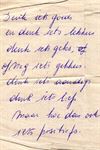 Denk iets goeds
en denk iets lekkers
denk iets geks, of
of nog iets gekkers
denk iets aardigs
denk iets lief
Maar hoe dan ook
iets positiefs.